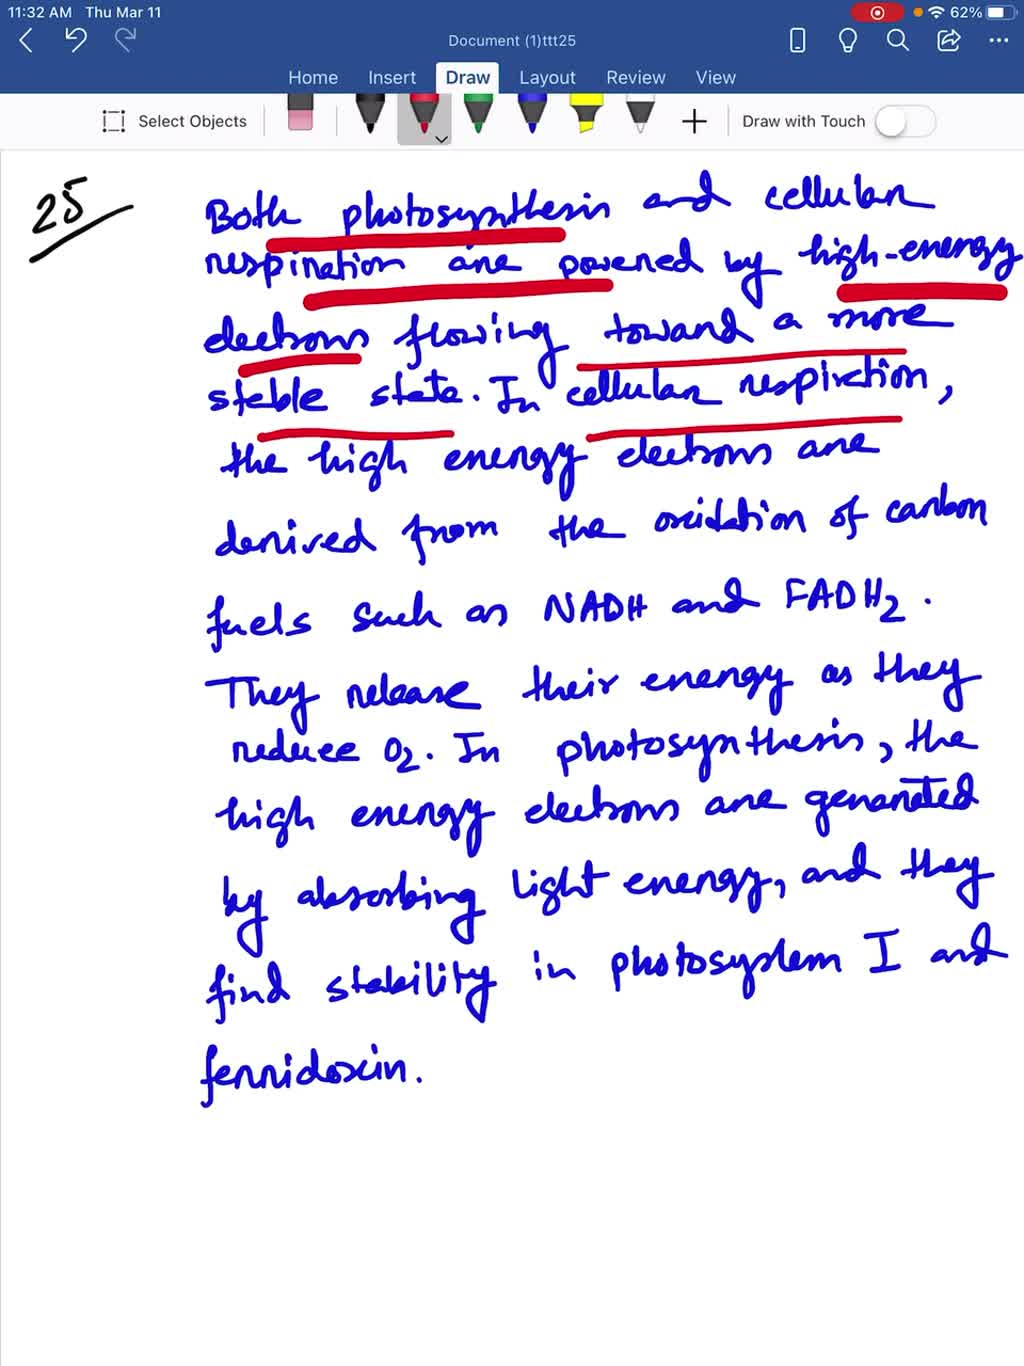 11:32 AM Thu Mar 11 62%
Document (1)ttt25
Home Insert Draw Layout Review View
Select Objects Draw with Touch
25
Both photosynthesis and cellular
respiration are powered by high-energy
electrons flowing toward a more
stable state. In cellular respiration,
the high energy electrons are
derived from the oxidation of carbon
fuels such as NADH and FADH2.
They release their energy as they
reduce O2. In photosynthesis, the
high energy electrons are generated
by absorbing light energy, and they
find stability in photosystem I and
ferridoxin.